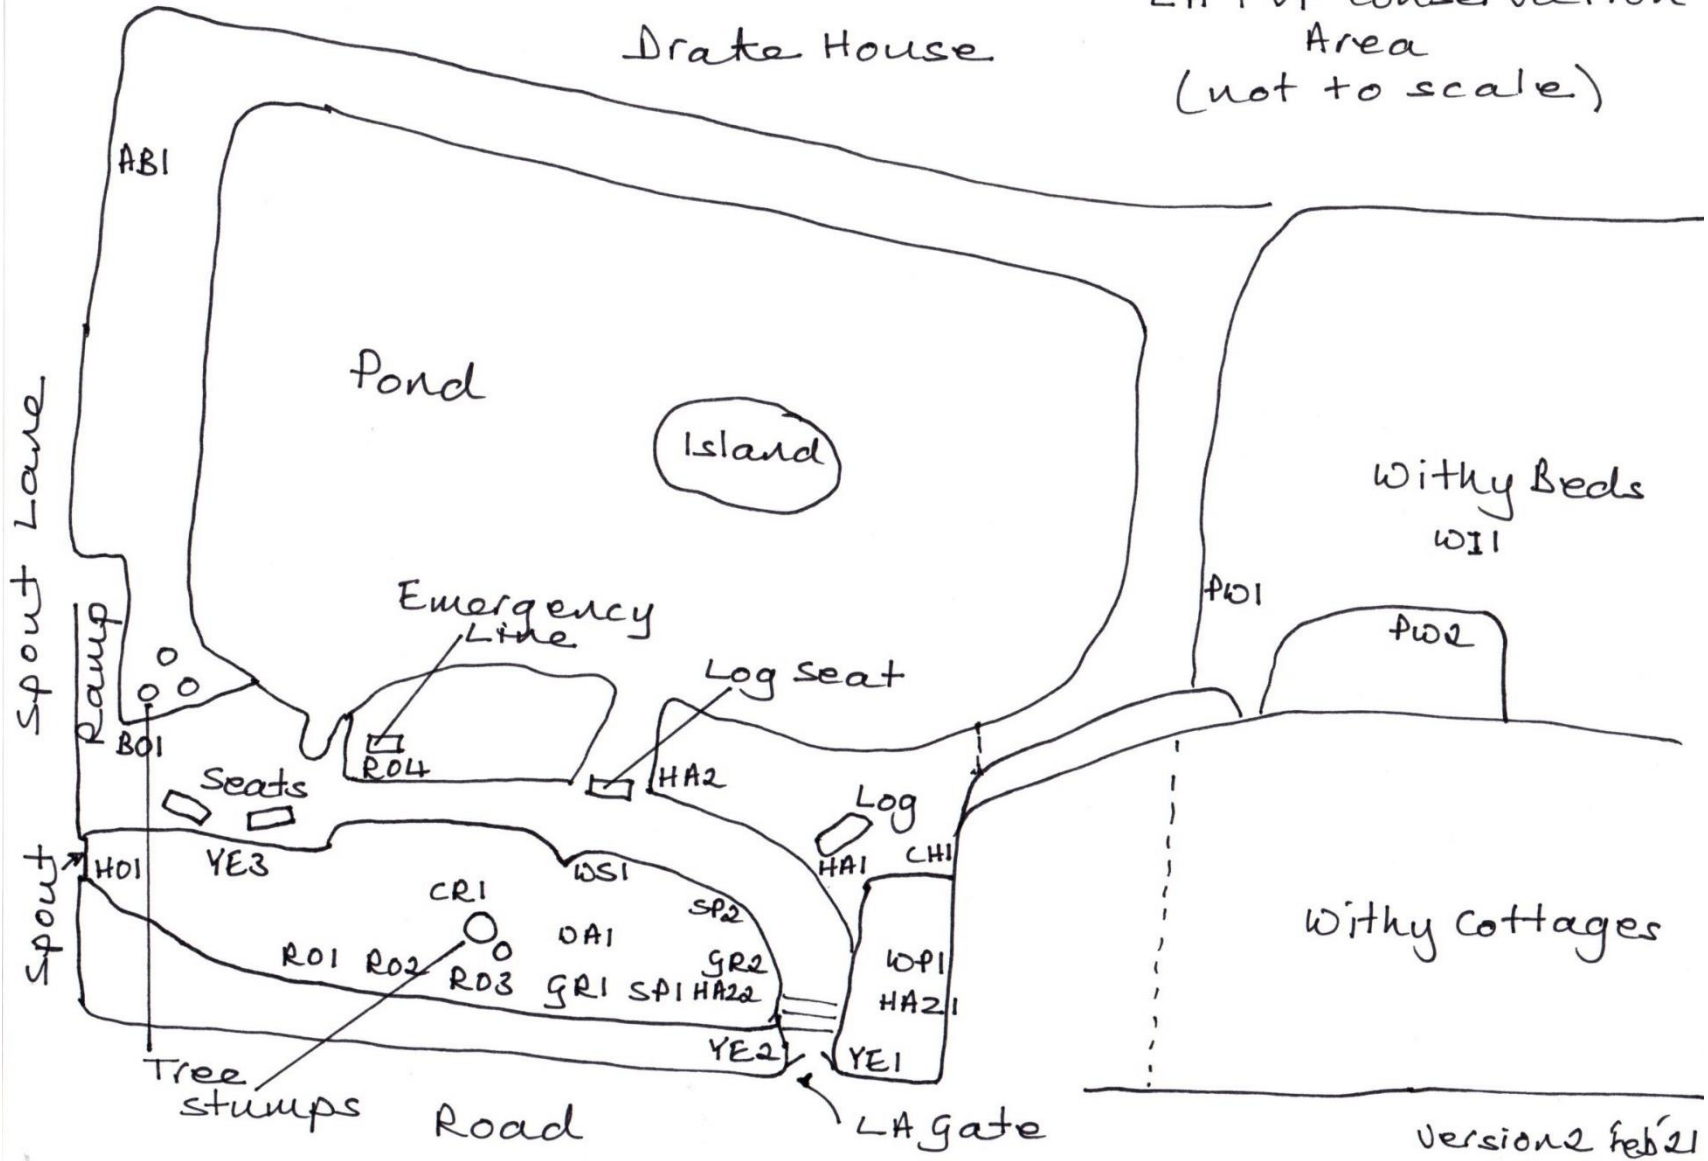 Conservation
Area
(not to scale)
Drake House
AB1
Pond
Island
Withy Beds
WI1
PW1
PW2
Spout Lane
Ramp
Emergency
Line
Log Seat
BO1
RO4
HA2
Seats
Log
HA1
CH1
Spout
HO1
YE3
WS1
CR1
SP2
OA1
RO1
RO2
RO3
GR1
SP1
GR2
HAZ2
WP1
HAZ1
Withy Cottages
YE2
YE1
Tree
stumps
Road
LA gate
Version2 Feb'21